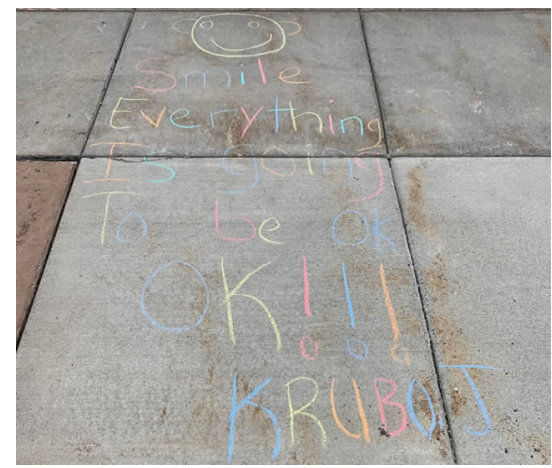 Smile
Everything
Is going
To be Ok
OK!!!
KRUBOJ